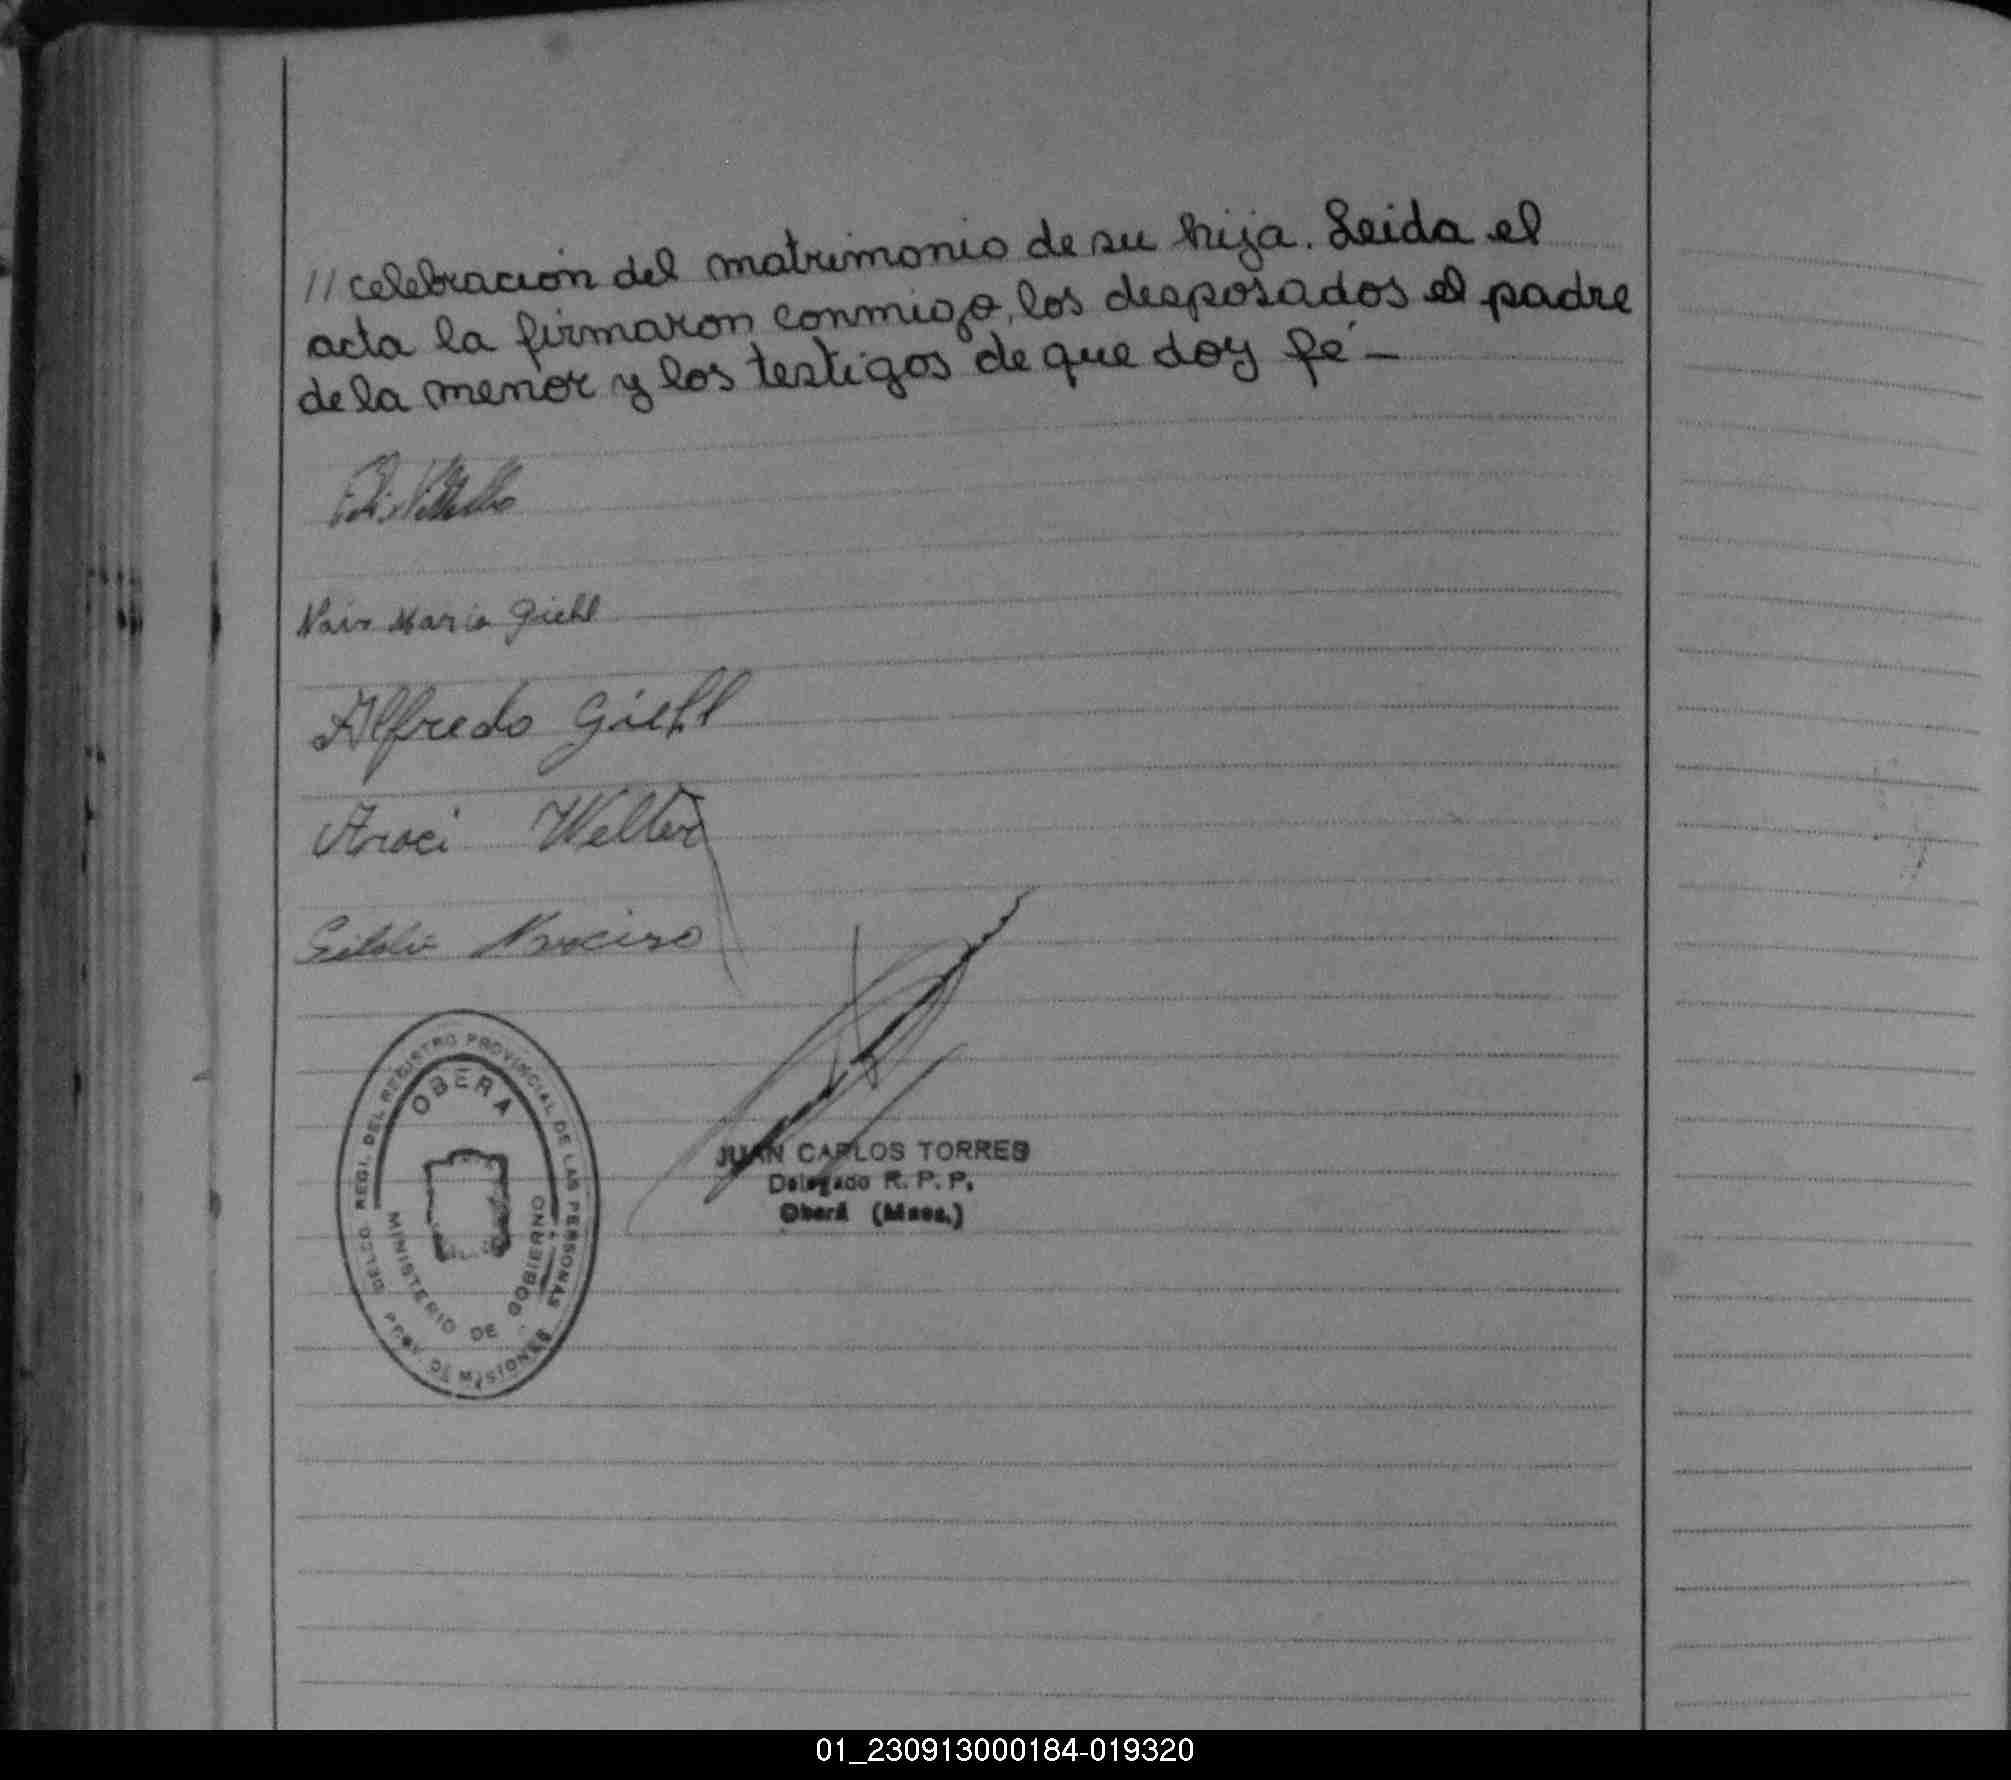 // celebración del matrimonio de su hija. Leida el
acta la firmaron conmigo, los desposados el padre
de la menor y los testigos de que doy fé -
Maria Giehl
Alfredo Giehl
Araci Welter
Narciso
OBERA
DELEG. REGI. DEL REGISTRO PROVINCIAL DE LAS PERSONAS
MINISTERIO DE GOBIERNO
PROV. DE MISIONES
JUAN CARLOS TORRES
Delegado R. P. P.
Oberá (Mnes.)
01_230913000184-019320